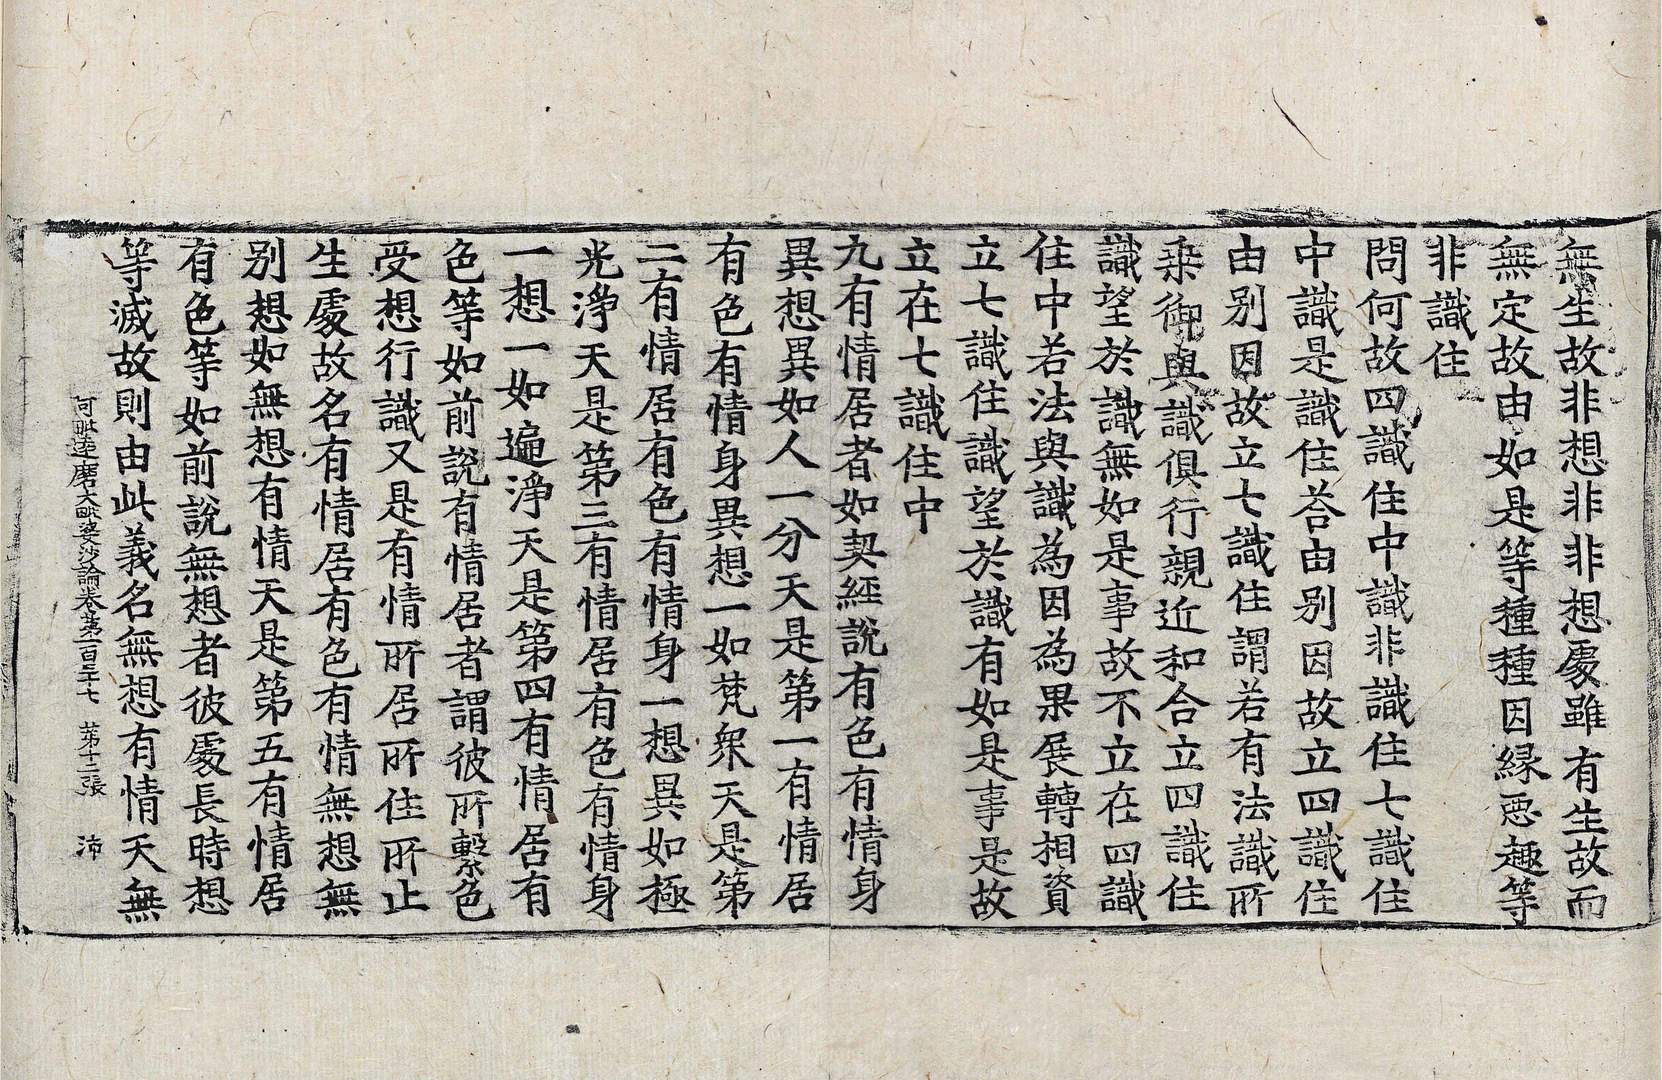 無生故非想非非想處雖有生故而
無定故由如是等種種因縁惡趣等
非識住
問何故四識住中識非識住七識住
中識是識住荅由别因故立四識住
由别因故立七識住謂若有法識所
乗御與識俱行親近和合立四識住
識望於識無如是事故不立在四識
住中若法與識為因為果展轉相資
立七識住識望於識有如是事是故
立在七識住中
九有情居者如契經說有色有情身
異想異如人一分天是第一有情居
有色有情身異想一如梵衆天是第
二有情居有色有情身一想異如極
光淨天是第三有情居有色有情身
一想一如遍淨天是第四有情居有
色等如前說有情居者謂彼所繫色
受想行識又是有情所居所住所止
生處故名有情居有色有情無想無
别想如無想有情天是第五有情居
有色等如前說無想者彼處長時想
等滅故則由此義名無想有情天無
阿毗達磨大毗婆沙論卷第一百三十七 第十二張 沛